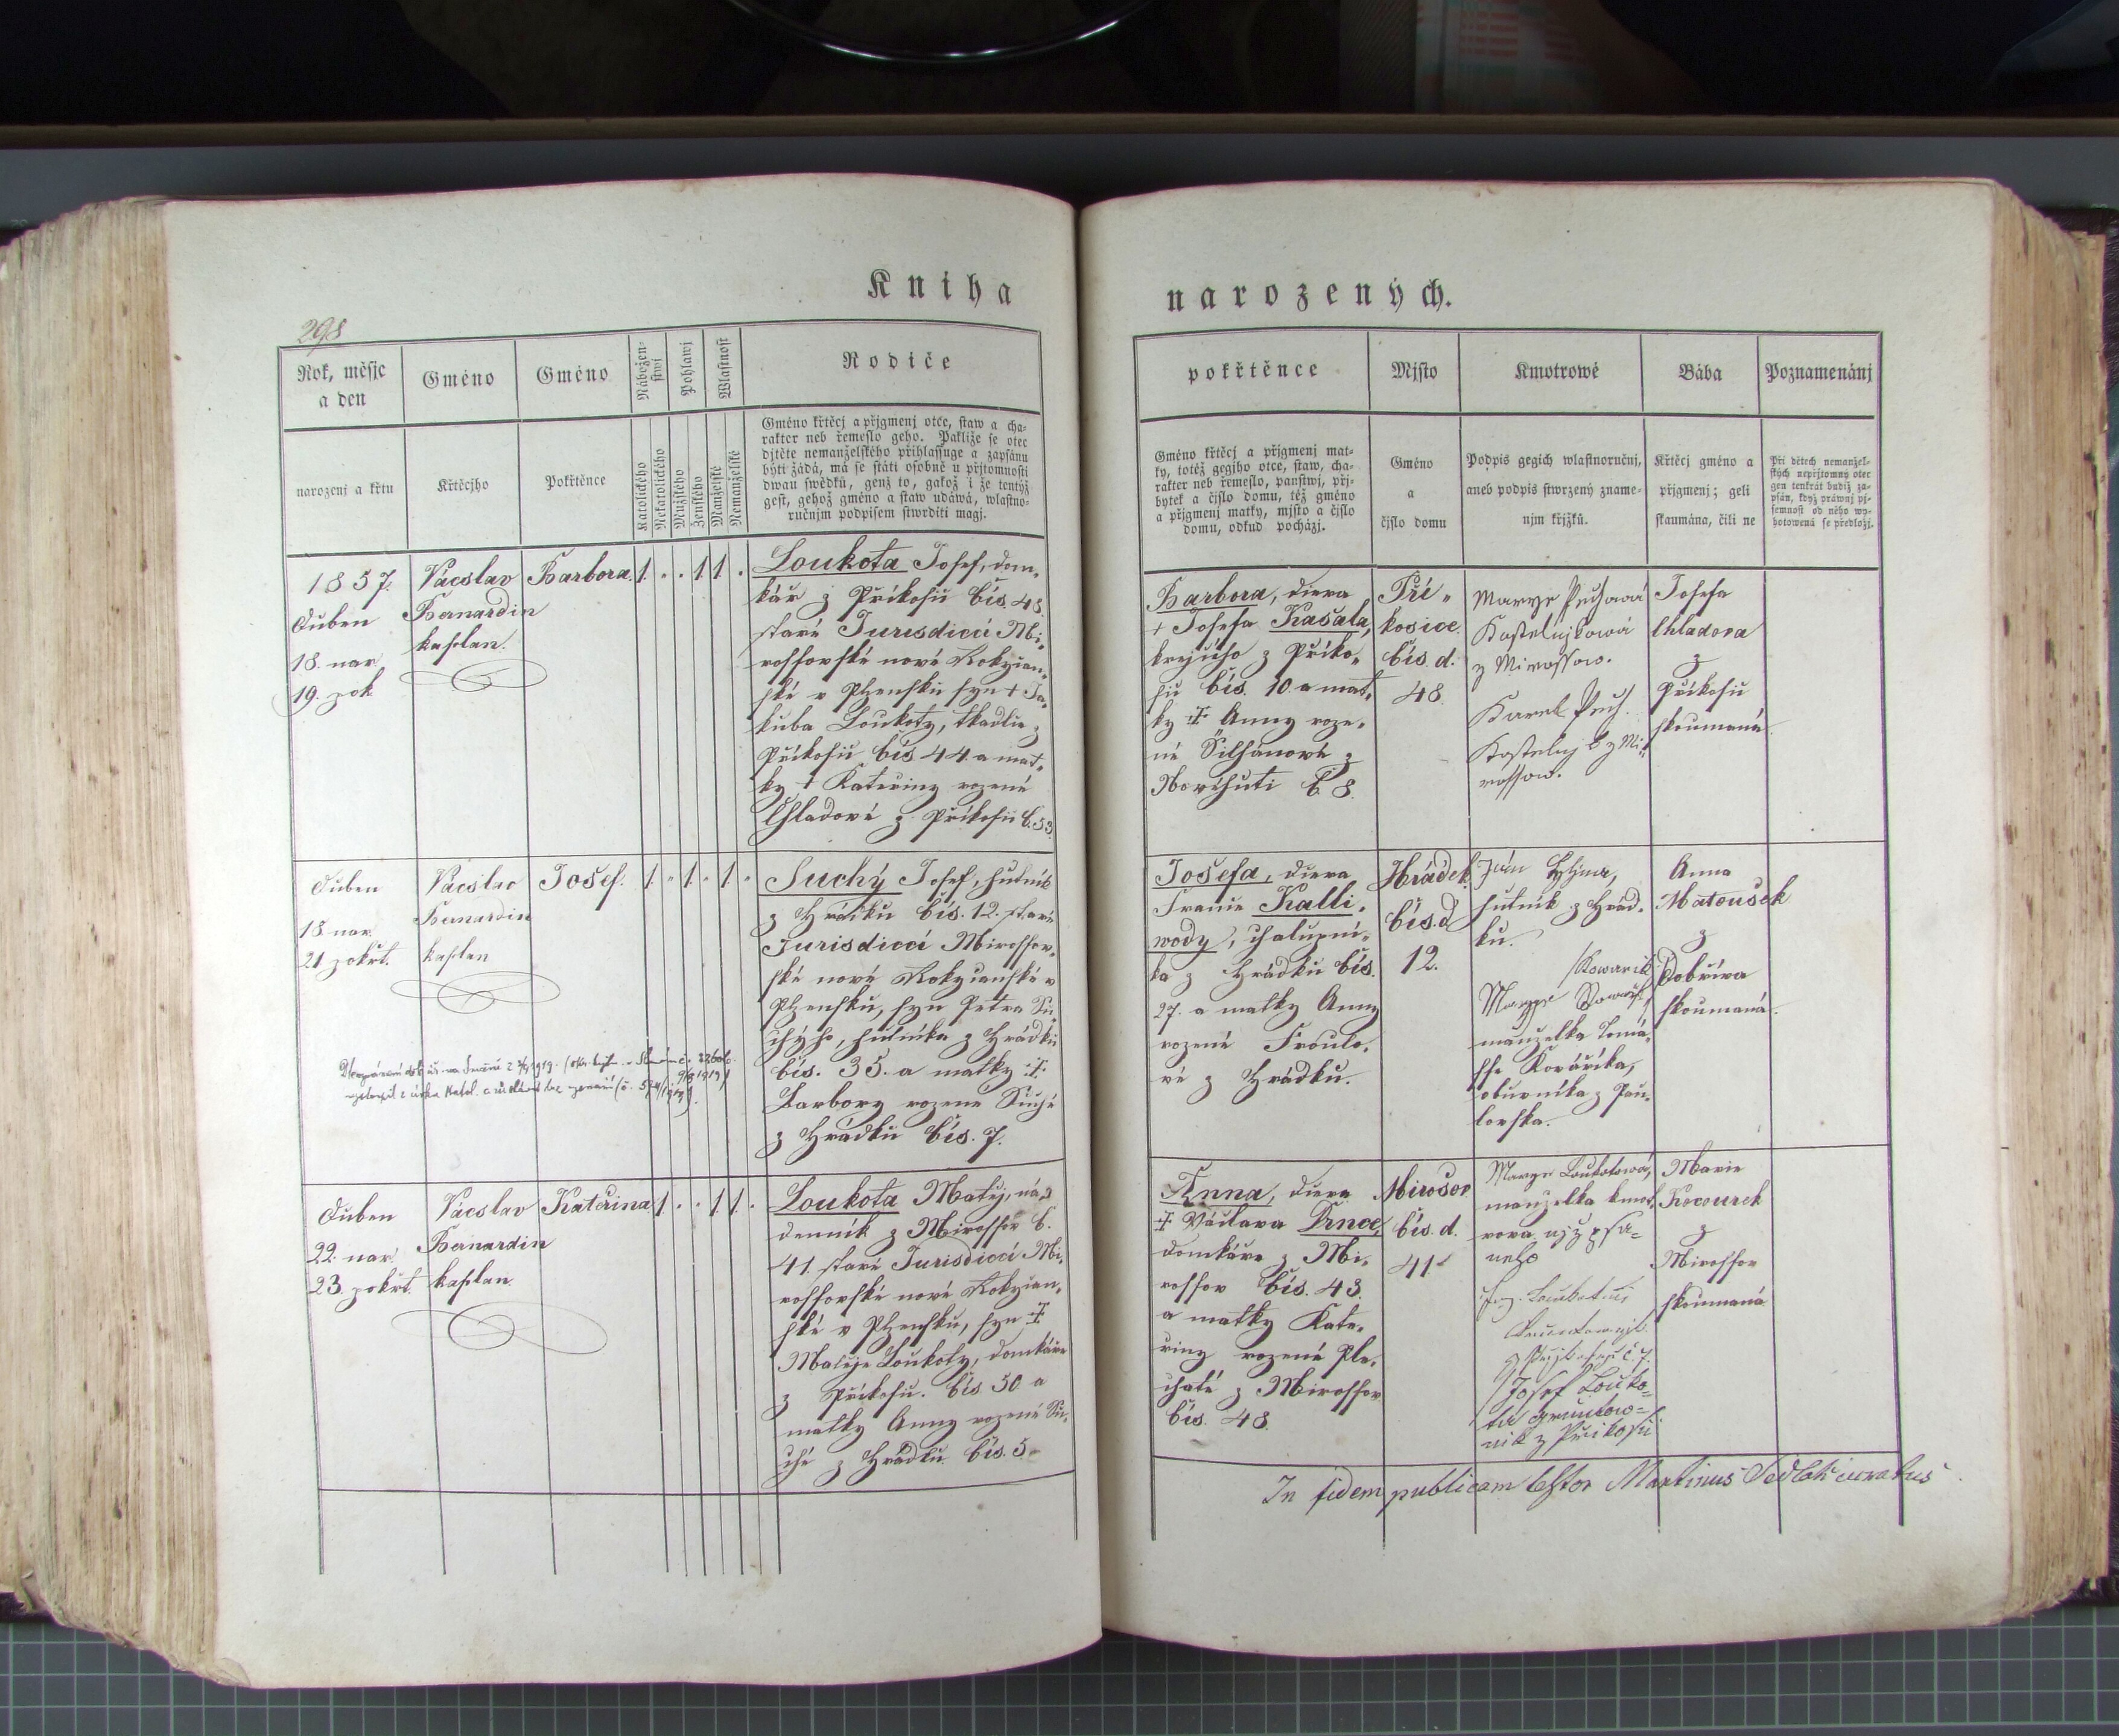 Kniha
narozených.
298
Rok, měsjc
a den
Gméno
Gméno
Nábožen-
stwj
Pohlawj
Wlastnost
Rodiče
narozenj a křtu
Křtěcjho
Pokřtěnce
Katolického
Nekatolického
Mužského
Ženského
Manželské
Nemanželské
Gméno křtěcj a přjgmenj otce, staw a cha-
rakter neb řemeslo geho. Pakliže se otec
djtěte nemanželského přihlassuge a zapsánu
býti žádá, má se státi osobně u přjtomnosti
dwau swědků, genž to, gakož i že tentýž
gest, gehož gméno a staw udáwá, wlastno-
ručnjm podpisem stwrditi magj.
pokřtěnce
Mjsto
Kmotrowé
Bába
Poznamenánj
Gméno křtěcj a přjgmenj mat-
ky, totéž gegjho otce, staw, cha-
rakter neb řemeslo, panstwj, přj-
bytek a čjslo domu, též gméno
a přjgmenj matky, mjsto a čjslo
domu, odkud pocházj.
Gméno
a
čjslo domu
Podpis gegich wlastnoručnj,
aneb podpis stwrzený zname-
njm křjžků.
Křtěcj gméno a
přjgmenj; geli
skaumána, čili ne
Při dětech nemanžel-
ských nepřjtomný otec
gen tenkrát budiž za-
psán, když práwnj pj-
semnost od něho wy-
hotowená se předložj.
1857.
Duben
18. nar.
19. pok.
Vácslav
Bernardin
kaplan.
Barbora.
1. . . 1 1 .
Loukota Josef, dom-
kář z Příkosic čís. 48
staré Jurisdicí Mi-
rossovské nové Rokycan-
ské v Plzensku syn † Ja-
kuba Loukoty, tkadlce z
Příkosic čís 44 a mat-
ky † Kateřiny rozené
Chladové z Příkosic č. 53.
Barbora, dcera
† Josefa Kasala,
krejčího z Příko-
sic čís. 10. a mat-
ky † Anny roze-
né Šilhánové z
č. 8.
Pří-
kosice
čís. d.
48.
Marye Pechová
Kostelníková
z Mirossow.
Karel Pech.
Kostelnj k z Mi-
rossow.
Josefa
Chladova
z
Příkosic
skoumaná.
Duben
18. nar.
21 pokřt.
Vácslav
Bernardin
kaplan
Josef.
1. . 1. . 1. .
Suchý Josef, hutník
z Hrádku čís. 12. staré
Jurisdicí Mirossov-
ské nové Rokycanské v
Plzensku, syn Petra Su-
chýho, hutníka z Hrádku
čís. 35. a matky †
Barbory rozene Suché
z Hrádku čís. 7.
Josefa, dcera
France Kalli-
wody, chalupní-
ka z Hrádku čís.
27. a matky Anny
rozené Froulo-
vé z Hrádku.
Hrádek
čís. d
12.
Ján
hutník z Hrád-
ku.
/Kowarik/
Marye
manzelka Tomá-
sse Kováříka,
obuvníka z Pav-
lovska.
Anna
Matousek
z
Dobříva
skoumaná.
Duben
22. nar.
23. pokřt.
Vácslav
Bernardin
kaplan.
Kateřina
1 . . 1 1. .
Loukota Matěj, ná-
denník z Mirossov č.
41. staré Jurisdicí Mi-
rossovské nové Rokycan-
ské v Plzensku, syn †
Matěje Loukoty, domkáře
z Příkosic. čís 50 a
matky Anny rozené Su-
ché z Hrádku čís. 5
Anna, dcera
† Václava Drnce,
domkáře z Mi-
rossov čís. 43.
a matky Kate-
řiny rozené Ple-
chaté z Mirossov
čís. 48.
Mirosov.
čís. d.
41.
Marye Loukotowá,
manzelka kmot-
rova njz psa-
neho
č. 7.
/Josef Louko-
ta gruntow-
nik z Přikosic/
Marie
Kocourek
z
Mirossov
skoumaná
In fidem publicam testor Martinus Sedlak curatus